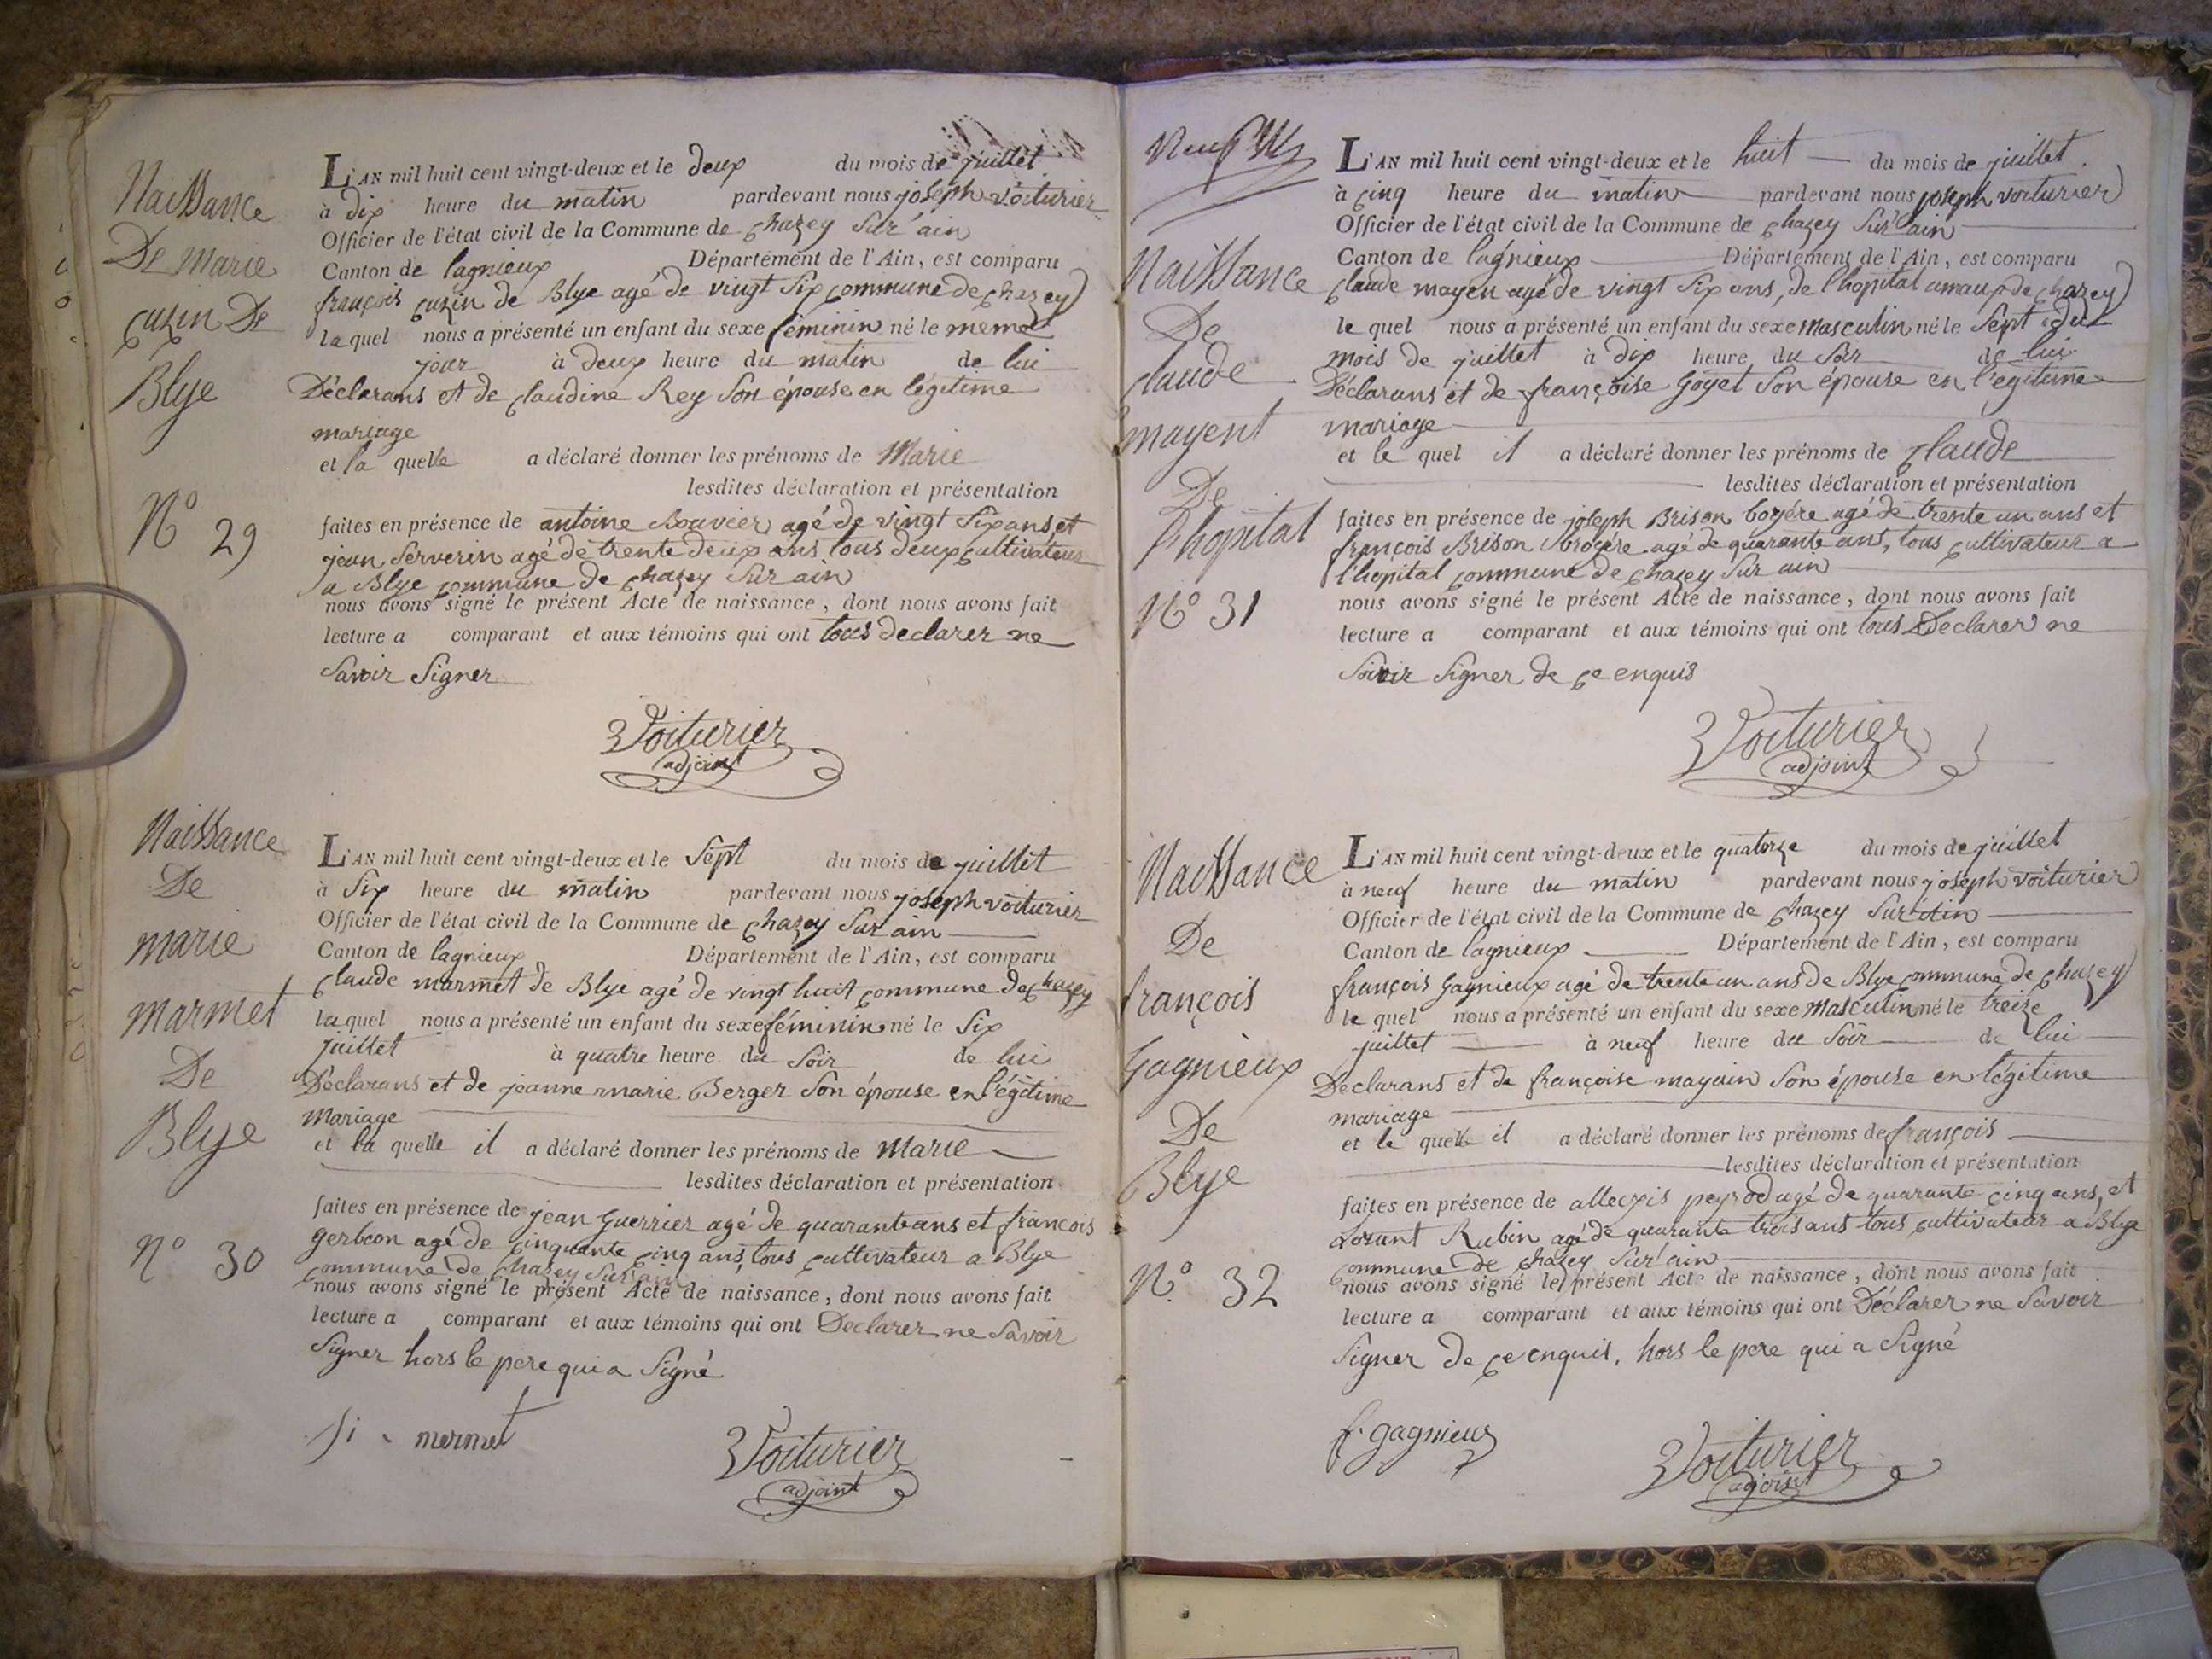 Naissance
De Marie
cuzin De
Blye
N° 29
L'AN mil huit cent vingt-deux et le deux du mois de juillet
à dix heure du matin pardevant nous joseph voiturier
Officier de l'état civil de la Commune de chazey Sur ain
Canton de lagnieux Département de l'Ain, est comparu
françois cuzin de Blye agé de vingt Six commune de chazey
le quel nous a présenté un enfant du sexe féminin né le meme
jour à deux heure du matin de lui
Déclarans et de claudine Rey Son épouse en légitime
mariage
et la quelle a déclaré donner les prénoms de Marie
lesdites déclaration et présentation
faites en présence de antoine Bouvier agé de vingt Six ans et
jean Serverin agé de trente deux ans tous deux cultivateurs
a Blye commune de chazey Sur ain
nous avons signé le présent Acte de naissance, dont nous avons fait
lecture a comparant et aux témoins qui ont tous declarer ne
Savoir Signer
Voiturier
adjoint
Naissance
De
marie
marmet
De
Blye
N° 30
L'AN mil huit cent vingt-deux et le Sept du mois de juillet
à Six heure du matin pardevant nous joseph voiturier
Officier de l'état civil de la Commune de chazey Sur ain
Canton de lagnieux Département de l'Ain, est comparu
claude marmet de Blye agé de vingt huit commune de chazey
le quel nous a présenté un enfant du sexe féminin né le Six
juillet à quatre heure du Soir de lui
Déclarans et de jeanne marie Berger Son épouse en légitime
Mariage
et la quelle il a déclaré donner les prénoms de Marie
lesdites déclaration et présentation
faites en présence de jean Guerrier agé de quarante ans et francois
gerbeon agé de cinquante cinq ans, tous cultivateur a Blye
commune de chazey Sur ain
nous avons signé le présent Acte de naissance, dont nous avons fait
lecture a comparant et aux témoins qui ont Declarer ne Savoir
Signer hors le pere qui a Signé
mermet
Voiturier
adjoint
Neuf
Naissance
De
claude
mayent
De
l'hopital
N° 31
L'AN mil huit cent vingt-deux et le huit du mois de juillet
à cinq heure du matin pardevant nous joseph voiturier
Officier de l'état civil de la Commune de chazey Sur ain
Canton de lagnieux Département de l'Ain, est comparu
claude mayen agé de vingt Six ans, de l'hopital amaux de chazey
le quel nous a présenté un enfant du sexe Masculin né le Sept du
mois de juillet à dix heure du Soir de lui
Déclarans et de françoise Goyet Son épouse en l'egitime
mariage
et le quel il a déclaré donner les prénoms de claude
lesdites déclaration et présentation
faites en présence de joseph Brison boyére agé de trente un ans et
françois Brison agé de quarante ans, tous cultivateur a
l'hopital commune de chazey Sur ain
nous avons signé le présent Acte de naissance, dont nous avons fait
lecture a comparant et aux témoins qui ont tous Declarer ne
Savoir Signer de ce enquis
Voiturier
adjoint
Naissance
De
françois
Gagnieux
De
Blye
N° 32
L'AN mil huit cent vingt-deux et le quatorze du mois de juillet
à neuf heure du matin pardevant nous joseph voiturier
Officier de l'état civil de la Commune de chazey Sur Ain
Canton de lagnieux Département de l'Ain, est comparu
françois Gagnieux agé de trente un ans de Blye commune de chazey
le quel nous a présenté un enfant du sexe Masculin né le treize
juillet à neuf heure du Soir de lui
Déclarans et de françoise mayain Son épouse en légitime
mariage
et le quelle il a déclaré donner les prénoms de françois
lesdites déclaration et présentation
faites en présence de allecxis peyrod agé de quarante cinq ans, et
Lorant Rubin agé de quarante trois ans tous cultivateur a Blye
commune de chazey Sur ain
nous avons signé le présent Acte de naissance, dont nous avons fait
lecture a comparant et aux témoins qui ont Déclarer ne Savoir
Signer de ce enquis, hors le pere qui a Signé
f. gagnieux
Voiturier
adjoint